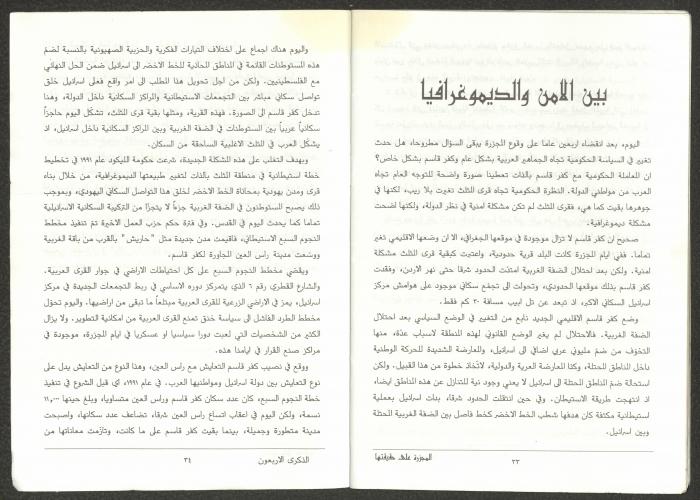 بين الامن والديموغرافيا
اليوم، بعد انقضاء اربعين عاما على وقوع الجزرة يبقى السؤال مطروحا، هل حدث
تغيير في السياسة الحكومية تجاه الجماهير العربية بشكل عام وكفر قاسم بشكل خاص؟
ان المعاملة الحكومية مع كفر قاسم بالذات تعطينا صورة واضحة للتوجه العام تجاه
العرب من مواطني الدولة. النظرة الحكومية تجاه قرى الثلث تغيرت بلا ريب، لكنها في
جوهرها بقيت كما هي، فقرى الثلث لم تكن مشكلة امنية في نظر الدولة، ولكنها اضحت
مشكلة ديموغرافية.
صحيح ان كفر قاسم لا تزال موجودة في موقعها الجغرافي، الا ان وضعها الاقليمي تغير
تماما. ففي ايام المجزرة كانت البلد قرية حدودية، واعتبرت كبقية قرى الثلث مشكلة
امنية. ولكن بعد احتلال الضفة الغربية امتدّت الحدود شرقا حتى نهر الاردن، وفقدت
كفر قاسم بذلك موقعها الحدودي، وتحولت الى تجمع سكاني موجود على هوامش مركز
اسرائيل السكاني الاكبر، اذ تبعد عن تل ابيب مسافة ٢٠ كم فقط.
وضع كفر قاسم الاقليمي الجديد نابع من التغيير في الوضع السياسي بعد احتلال
الضفة الغربية. فالاحتلال لم يغير الوضع القانوني لهذه المنطقة لاسباب عدّة، منها
التخوف من ضمّ مليوني عربي اضافي الى اسرائيل، والمعارضة الشديدة للحركة الوطنية
داخل المناطق المحتلة، وكذا المعارضة العربية والدولية، لاتّخاذ خطوة من هذا القبيل. ولكن
استحالة ضمّ المناطق المحتلة الى اسرائيل لا يعني وجود نية للتنازل عن هذه المناطق ايضا،
اذ انتهجت طريقة الاستيطان. وفي حين انتقلت الحدود شرقا، بدأت اسرائيل بعملية
استيطانية مكثفة كان هدفها شطب الخط الاخضر كخط فاصل بين الضفة الغربية المحتلة
وبين اسرائيل.
المجزرة على حقيقتها
٣٣
واليوم هناك اجماع على اختلاف التيارات الفكرية والحزبية الصهيونية بالنسبة لضمّ
هذه المستوطنات القائمة في المناطق المحاذية للخط الاخضر الى اسرائيل ضمن الحل النهائي
مع الفلسطينيين. ولكن من اجل تحويل هذا المطلب الى امر واقع فعلى اسرائيل خلق
تواصل سكاني مباشر بين التجمعات الاستيطانية والمراكز السكانية داخل الدولة، وهنا
تدخل كفر قاسم الى الصورة. فهذه القرية، ومثلها بقية قرى الثلث، تشكّل اليوم حاجزاً
سكانياً عربياً بين المستوطنات في الضفة الغربية وبين المراكز السكانية داخل اسرائيل، اذ
يشكّل العرب في الثلث الاغلبية الساحقة من السكان.
وبهدف التغلب على هذه المشكلة الجديدة، شرعت حكومة الليكود عام ١٩٩١ في تخطيط
خطة استيطانية في منطقة الثلث بالذات لتغيير طبيعتها الديموغرافية، من خلال بناء
قرى ومدن يهودية بمحاذاة الخط الاخضر لخلق هذا التواصل السكاني اليهودي، وبموجب
ذلك يصبح المستوطنون في الضفة الغربية جزءًا لا يتجزّأ من التركيبة السكانية الاسرائيلية
تماما كما يحدث اليوم في القدس. وفي فترة حكم حزب العمل الاخيرة تمّ تنفيذ مخطط
النجوم السبع الاستيطاني، فأقيمت مدن جديدة مثل "حاريش" بالقرب من باقة الغربية
ووسعت مدينة راس العين المجاورة لكفر قاسم.
ويقضي مخطط النجوم السبع على كل احتياطات الاراضي في جوار القرى العربية.
والشارع القطري رقم ٦ الذي يتمركز دوره الاساسي في ربط التجمعات الجديدة في مركز
اسرائيل، يمرّ في الاراضي الزراعية للقرى العربية مبتلعاً ما تبقى من اراضيها. واليوم تحوّل
مخطط الطرد الفاشل الى سياسة خنق تمنع القرى العربية من امكانية التطوير. ولا يزال
الكثير من الشخصيات التي لعبت دورا سياسيا او عسكريا في ايام المجزرة، موجودة في
مراكز صنع القرار في ايامنا هذه.
ووقع في نصيب كفر قاسم التعايش مع راس العين، وهذا النوع من التعايش يدل على
نوع التعايش بين دولة اسرائيل ومواطنيها العرب. في عام ١٩٩١، اي قبل الشروع في تنفيذ
خطة النجوم السبع، كان عدد سكان كفر قاسم وراس العين متساويا، وبلغ حينها ١١,٠٠٠
نسمة، ولكن اليوم في اعقاب اتساع راس العين شرقا، تضاعف عدد سكانها، واصبحت
مدينة متطورة وجميلة، بينما بقيت كفر قاسم على ما كانت، وتأزمت معاناتها من
الذكرى الاربعون
٣٤